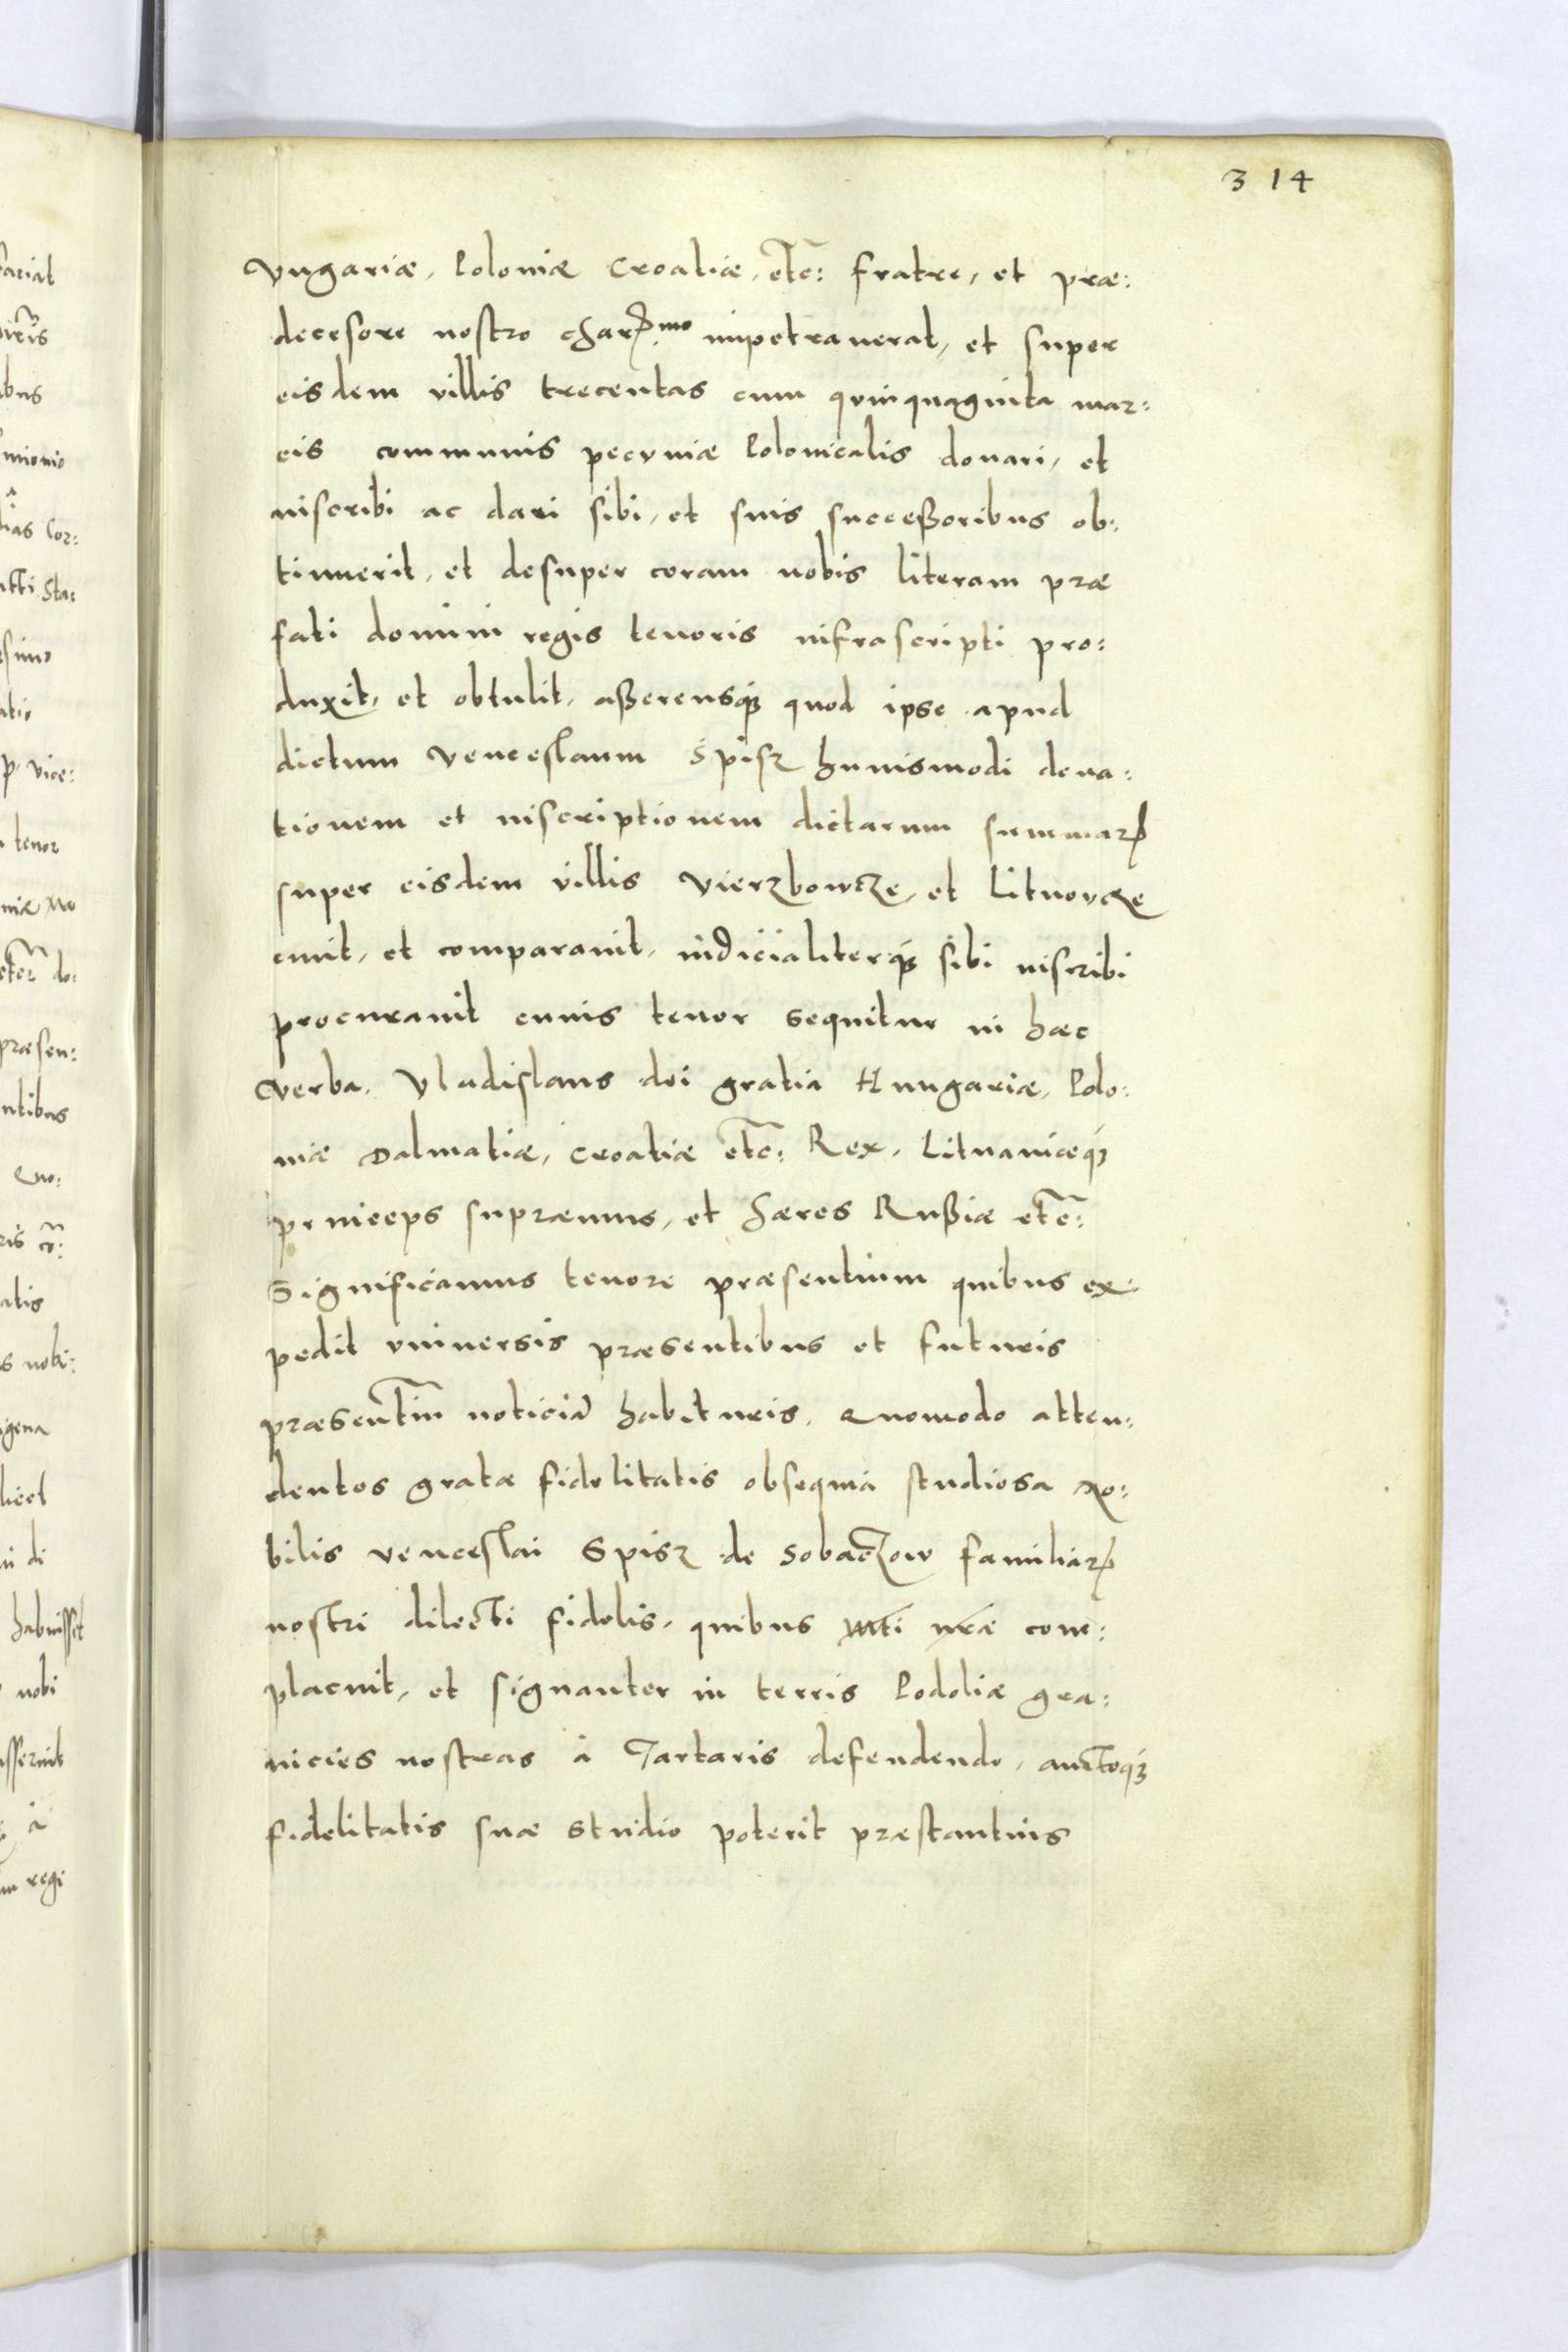 314
Vngariæ, Poloniæ Croatiæ, etc: fratre, et præ:
decesore nostro char.mo impetraverat, et super
eisdem villis trecentas cum qvinquaginta mar:
cis communis pecvniæ Polonicalis donari, et
inscribi ac dari sibi, et suis successoribus ob:
tinuerit, et desuper coram nobis literam præ
fati domini regis tenoris infrascripti pro:
duxit, et obtulit, asserensq3 quod ipse apud
dictum Venceslaum Spisz huiusmodi dona:
tionem et inscriptionem dictarum summarꝝ
super eisdem villis Vierzbowcze, et Litnovcze
emit, et comparauit, iudicialiterq3 sibi inscribi
procurauit cuius tenor sequitur in hæc
verba. Vladislaus dei gratia Hungariæ, Polo:
niæ Dalmatiæ, Croatiæ etc: Rex, Lituaniæq3
princeps supræmus, et hæres Russiæ etc:
Significamus tenore præsentium quibus ex:
pedit vniuersis præsentibus et futuris
præsentiu noticiã habituris. Quomodo atten:
dentes gratæ fidelitatis obsequia studiosa No:
bilis Venceslai Spisz de Sobaczow familiarꝝ
nostri dilecti fidelis, quibus Mti nræ com:
placuit, et signanter in terris Podoliæ gra:
nicies nostras à Tartaris defendendo, auctoq3
fidelitatis suæ studio poterit præstantius